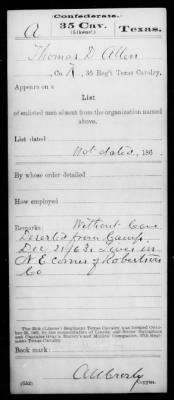 Confederate.
A 35 Cav. Texas.
(Likens'.)
Thomas D. Allen
, Co. K, 35 Reg't Texas Cavalry,
Appears on a
List
of enlisted men absent from the organization named
above.
List dated
Not dated, 186
By whose order detailed
How employed
Remarks: Without Leave
Deserted from Camp
Dec 31/63. Lives in
N.E. corner of Robertson
Co
The 35th (Likens') Regiment Texas Cavalry was formed October
by the consolidation of Likens' and Burns' Battalions
and Companies
ment Texas Cavalry.
Book mark:
Copyist.